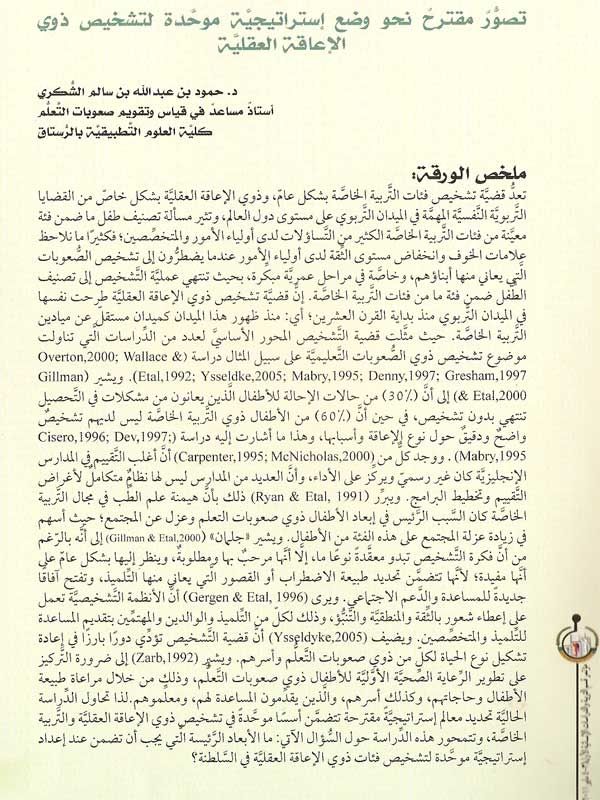 تصوُّر مقترحٌ نحو وضع إستراتيجيَّة موحَّدة لتشخيص ذوي
الإعاقة العقليَّة
د. حمود بن عبدالله بن سالم الشُّكري
أستاذ مساعد في قياس وتقويم صعوبات التَّعلُّم
كليَّة العلوم التَّطبيقيَّة بالرُّستاق
ملخص الورقة:
تعدُّ قضيَّة تشخيص فئات التَّربية الخاصَّة بشكل عامّ، وذوي الإعاقة العقليَّة بشكل خاصّ من القضايا
التربويَّة النَّفسيَّة المهمَّة في الميدان التَّربوي على مستوى دول العالم، وتثير مسألة تصنيف طفل ما ضمن فئة
معيَّنة من فئات التَّربية الخاصَّة الكثير من التَّساؤلات لدى أولياء الأمور والمتخصِّصين؛ فكثيرًا ما نلاحظ
علامات الخوف وانخفاض مستوى الثقة لدى أولياء الأمور عندما يضطرُّون إلى تشخيص الصُّعوبات
الَّتي يعاني منها أبناؤهم، وخاصَّة في مراحل عمريَّة مبكرة، بحيث تنتهي عمليَّة التَّشخيص إلى تصنيف
الطِّفل ضمن فئة ما من فئات التَّربية الخاصَّة. إنَّ قضيَّة تشخيص ذوي الإعاقة العقليَّة طرحت نفسها
في الميدان التَّربوي منذ بداية القرن العشرين؛ أي: منذ ظهور هذا الميدان كميدان مستقلّ عن ميادين
التَّربية الخاصَّة. حيث مثَّلت قضية التَّشخيص المحور الأساسيَّ لعدد من الدِّراسات الَّتي تناولت
موضوع تشخيص ذوي الصُّعوبات التَّعليميَّة على سبيل المثال دراسة (Overton,2000; Wallace &
Etal,1992; Ysseldke,2005; Mabry,1995; Denny,1997; Gresham,1997). ويشير (Gillman
& Etal,2000) إلى أنَّ (30٪) من حالات الإحالة للأطفال الَّذين يعانون من مشكلات في التَّحصيل
تنتهي بدون تشخيص، في حين أنَّ (60٪) من الأطفال ذوي التَّربية الخاصَّة ليس لديهم تشخيصٌ
واضحٌ ودقيقٌ حول نوع الإعاقة وأسبابها، وهذا ما أشارت إليه دراسة (Cisero,1996; Dev,1997;
Mabry,1995) . ووجد كلٌّ من (Carpenter,1995; McNicholas,2000) أنَّ أغلب التَّقييم في المدارس
الإنجليزيَّة كان غير رسميّ ويركِّز على الأداء، وأنَّ العديد من المدارس ليس لها نظامٌ متكاملٌ لأغراض
التَّقييم وتخطيط البرامج. ويبرِّر (Ryan & Etal, 1991) ذلك بأنَّ هيمنة علم الطِّب في مجال التَّربية
الخاصَّة كان السَّبب الرَّئيس في إبعاد الأطفال ذوي صعوبات التعلم وعزل عن المجتمع؛ حيث أسهم
في زيادة عزلة المجتمع على هذه الفئة من الأطفال. ويشير «جلمان» (Gillman & Etal,2000) إلى أنَّه بالرّغم
من أنَّ فكرة التَّشخيص تبدو معقَّدةً نوعًا ما، إلَّا أنَّها مرحبٌ بها ومطلوبةٌ، وينظر إليها بشكل عامّ على
أنَّها مفيدة؛ لأنَّها تتضمَّن تحديد طبيعة الاضطراب أو القصور الَّتي يعاني منها التِّلميذ، وتفتح آفاقًا
جديدة للمساعدة والدَّعم الاجتماعي. ويرى (Gergen & Etal, 1996) أنَّ الأنظمة التَّشخيصيَّة تعمل
على إعطاء شعور بالثِّقة والمنطقيَّة والتَّنبُّؤ، وذلك لكلّ من التِّلميذ والوالدين والمهتمِّين بتقديم المساعدة
للتِّلميذ والمتخصِّصين. ويضيف (Ysseldyke,2005) أنَّ قضية التَّشخيص تؤدِّي دورًا بارزًا في إعادة
تشكيل نوع الحياة لكلّ من ذوي صعوبات التَّعلُّم وأسرهم. ويشير (Zarb,1992) إلى ضرورة التَّركيز
على تطوير الرِّعاية الصِّحيَّة الأوَّليَّة للأطفال ذوي صعوبات التَّعلُّم، وذلك من خلال مراعاة طبيعة
الأطفال وحاجاتهم، وكذلك أسرهم، والَّذين يقدِّمون المساعدة لهم، ومعلِّموهم.لذا تحاول الدِّراسة
الحاليَّة تحديد معالم إستراتيجيَّة مقترحة تتضمَّن أسسًا موحَّدة في تشخيص ذوي الإعاقة العقليَّة والتَّربية
الخاصَّة، وتتمحور هذه الدِّراسة حول السُّؤال الآتي: ما الأبعاد الرَّئيسة الَّتي يجب أن تضمن عند إعداد
إستراتيجيَّة موحَّدة لتشخيص فئات ذوي الإعاقة العقليَّة في السَّلطنة؟